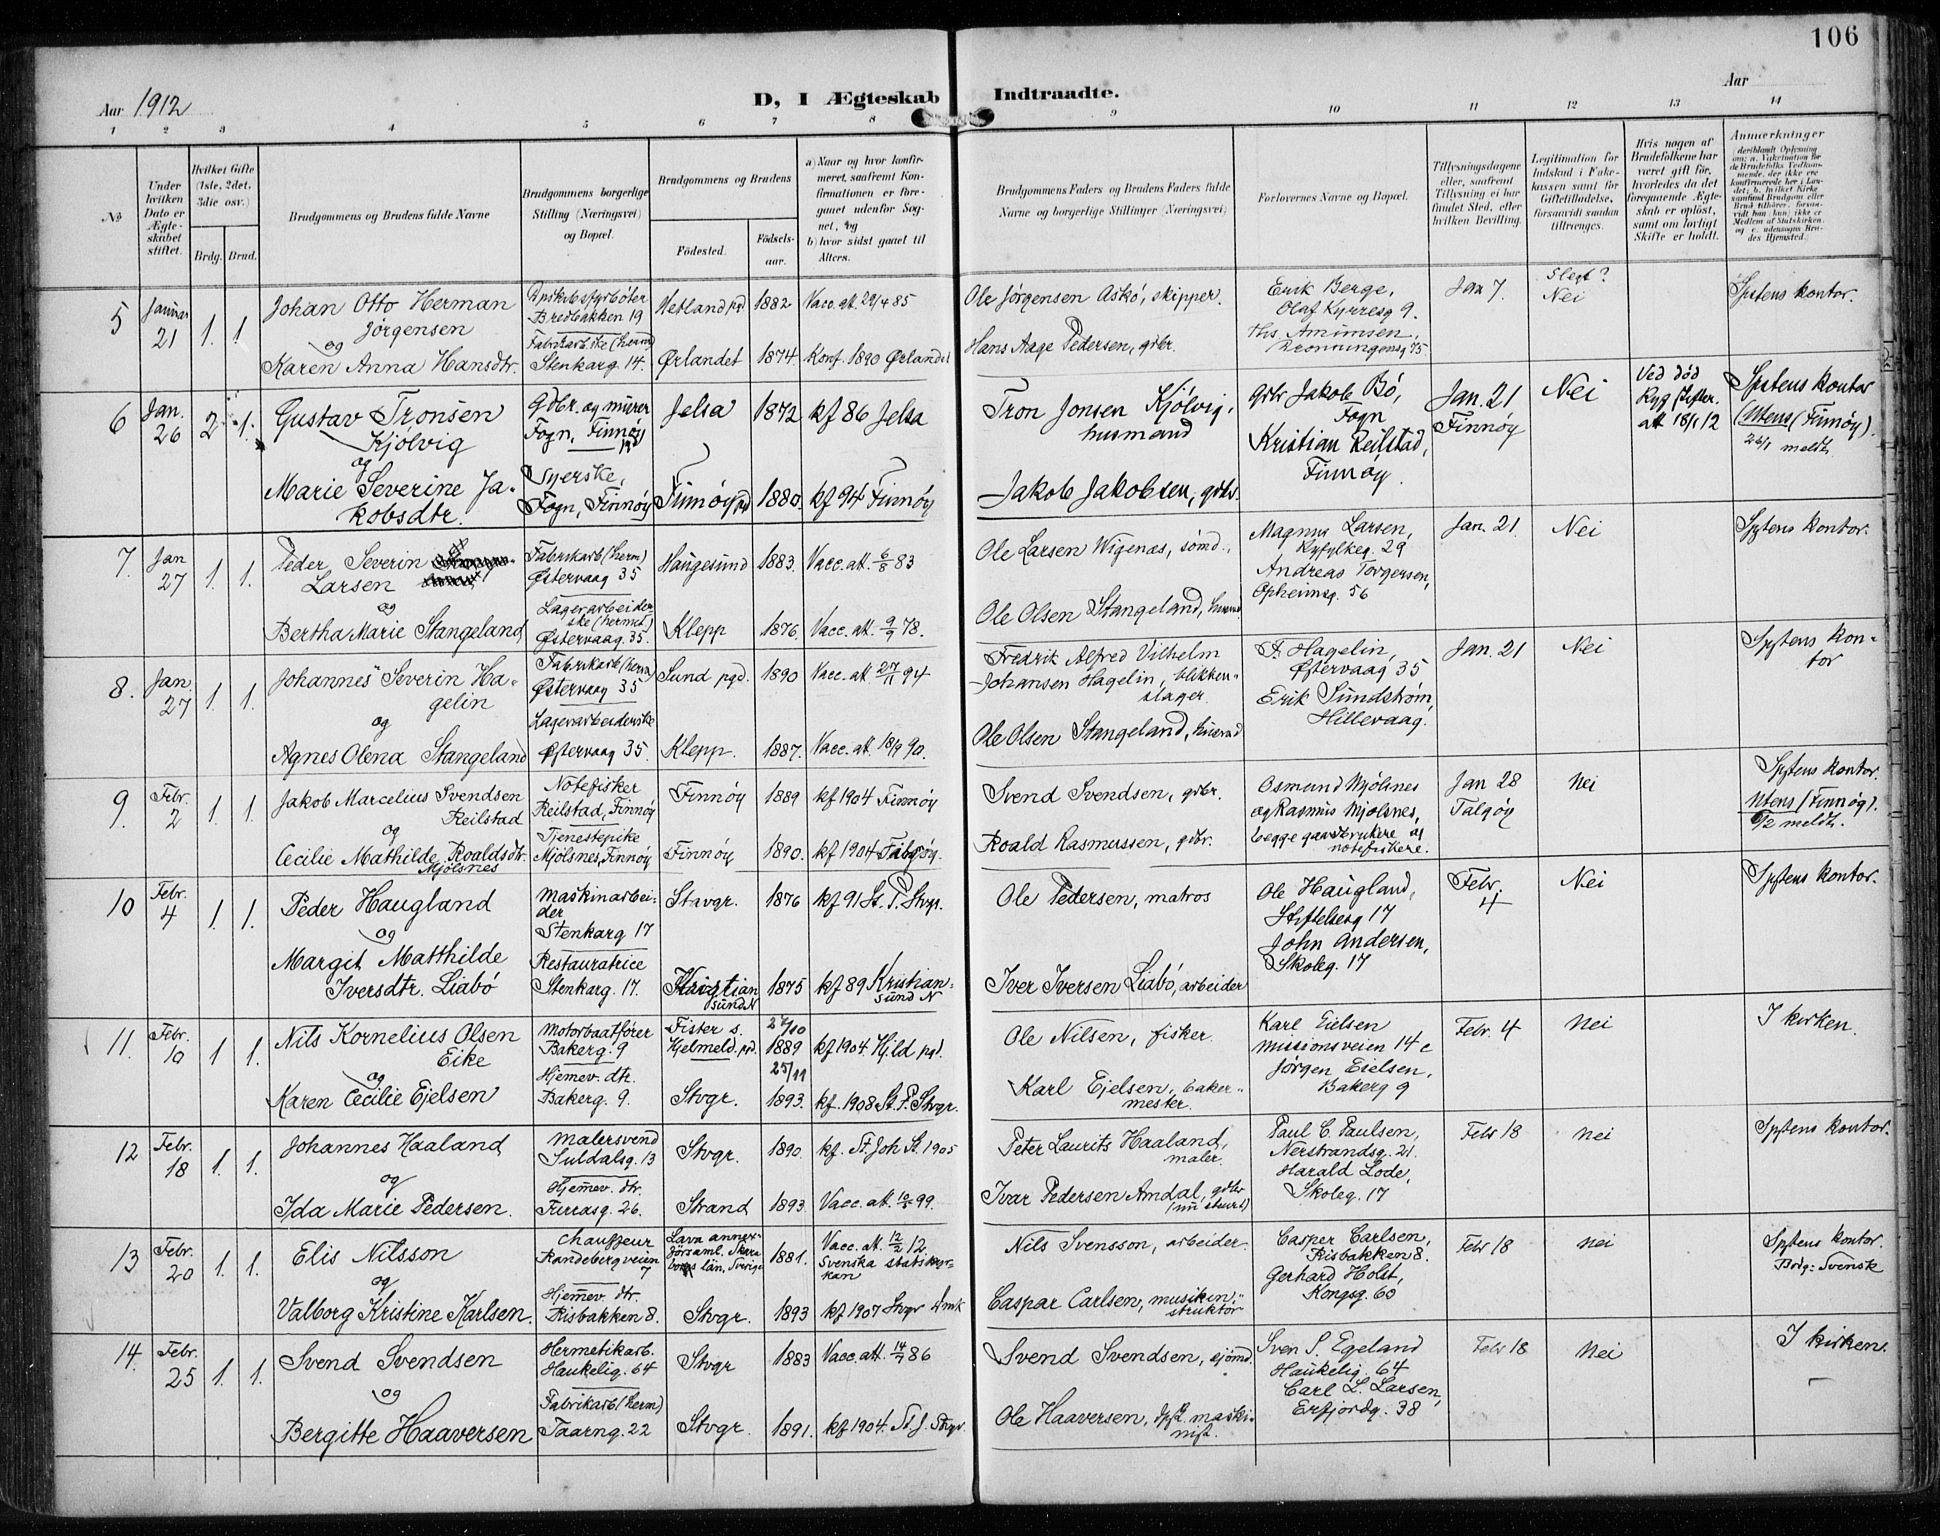 106
Aar 1912
D, I Ægteskab Indtraadte.
Aar
1 2 3 4 5 6 7 8 9 10 11 12 13 14
No
Under hvilken Dato er Ægteskabet stiftet.
Hvilket Gifte (1ste, 2det, 3die osv.)
Brdg. Brud.
Brudgommens og Brudens fulde Navne
Brudgommens borgerlige Stilling (Næringsvei) og Bopæl.
Brudgommens og Brudens
Fødested. Fødselsaar.
a) Naar og hvor konfirmeret, saafremt Konfirmationen er foregaaet udenfor Sognet, og
b) hvor sidst gaaet til Alters.
Brudgommens Faders og Brudens Faders fulde Navne og borgerlige Stillinger (Næringsvei)
Forlovernes Navne og Bopæl.
Tillysningsdagene eller, saafremt Tillysning ei har fundet Sted, efter hvilken Bevilling.
Legitimation for Indskud i Enkekassen samt for Giftetilladelse, forsaavidt saadan tiltrænges.
Hvis nogen af Brudefolkene har været gift før, hvorledes da det foregaaende Ægteskab er opløst, samt om lovligt Skifte er holdt.
Anmærkninger
5 Januar 21 1. 1
Johan Otto Herman
Jörgensen
og
Karen Anna Hansdtr.
Bredbakken 19
Stenkarg. 14.
Vetland pd 1882 Vacc. att. 29/4 85
Ørlandet 1874 Konf. 1890 Ørlandet
Ole Jörgensen Askö, skipper.
Hans Aage Pedersen, gdbr.
Erik Berge,
Olaf Kyrresg 9.
Ths. Amundsen
Jan 7. Slegt?
Nei
Spstens kontor.
6 Jan. 26 2 1.
Gustav Tronsen
Kjölvig
og
Marie Severine Ja-
kobsdtr.
Gdbr. og murer
Fogn, Finnöy
Syerske,
Fogn, Finnöy
Jelsa 1872 kf 86 Jelsa
Finnöy pd 1880. kf 94 Finnöy
Tron Jonsen Kjölvig,
husmand
Jakob Jakobsen, gdbr.
gdbr Jakob Bö,
Fogn
Kristian Reilstad,
Finnöy.
Jan. 21
Finnöy
Nei
Ved död
att 18/1 12
Spstens kontor
Utens (Finnöy).
26/1 meldt.
7. Jan 27 1. 1.
Peder Severin
Larsen
og
Bertha Marie Stangeland
Fabrikarb (herm)
Østervaag 35
Lagerarbeider-
ske (hermet)
Østervaag. 35.
Haugesund 1883. Vacc. att. 6/8 83
Klepp 1876. Vacc. att. 9/9 78.
Ole Larsen Wigenæs, sömd.,
Ole Olsen Stangeland, husmd
Magnus Larsen,
Ryfylkeg. 29
Andreas Torgersen,
Opheimsg. 56
Jan. 21 Nei
Spstens kontor.
8. Jan. 27 1. 1.
Johannes Severin Ha-
gelin
og
Agnes Olena Stangeland
Fabrikarb (herm)
Østervaag 35
Lagerarbeiderske
Østervaag 35.
Sund pgd. 1890 Vacc. att 27/11 94
Klepp. 1887. Vacc. att. 18/9 90.
Fredrik Alfred Vilhelm
Johansen Hagelin, blikken-
slager.
Ole Olsen Stangeland, husmd
F. Hagelin,
Østervaag 35
Erik Sundström,
Hillevaag.
Jan. 21 Nei
Spstens kon-
tor
9. Febr. 2 1. 1.
Jakob Marcelius Svendsen
Reilstad
og
Cecilie Mathilde Roaldsdtr.
Mjölsnes
Notefisker
Reilstad, Finnöy
Tjenestepike
Mjölsnes, Finnöy
Finnöy 1889 kf 1904 Finnöy
Finnöy 1890. kf 1904 Talgöy.
Svend Svendsen, gdbr.
Roald Rasmussen, gdbr.
Osmund Mjölsnes
og Rasmus Mjölsnes,
begge gaardbrukere og
notefiskere.
Jan 28
Talgöy
Nei
Spstens kontor.
Utens (Finnöy).
9/2 meldt.
10 Febr. 4 1. 1.
Peder Haugland
og
Margit Matthilde
Iversdtr. Liabö
Maskinarbei-
der
Stenkarg 17
Restauratrice
Stenkarg. 17.
Stavgr. 1876 kf 91 St. P. Stvgr.
Kristian
sund N 1875 kf 89 Kristian-
sund N
Ole Pedersen, matros
Iver Iversen Liabö, arbeider
Ole Haugland,
Stiftelsesg 17
John Andersen,
Skoleg. 17
Febr. 4 Nei
Spstens kontor.
11. Febr. 10 1 1.
Nils Kornelius Olsen
Eike
og
Karen Cecilie Ejelsen
Motorbaatförer
Bakerg. 9
Hjemev. dtr.
Bakerg. 9.
Fister s.
Hjelmeld. pd. 27/10 1889 kf 1904. Hjld pgd.
Stvgr. 25/11 1893. kf. 1908 St. P. Stvgr.
Ole Nilsen, fisker.
Karl Ejelsen, baker-
mester.
Karl Eielsen
Missionsveien 14 c
Jörgen Eielsen,
Bakerg 9
Febr. 4 Nei
I kirken.
12 Febr. 18 1. 1.
Johannes Haaland
og
Ida Marie Pedersen.
Malersvend
Suldalsg. 13
Hjemev. dtr.
Furrasg. 26.
Stvgr. 1890. kf. St. Joh St. 1905
Strand 1893. Vacc. att. 99.
Peter Laurits Haaland,
maler.
Ivar Pedersen Amdal, gdbr
Paul C. Paulsen,
Nerstrandsg. 21.
Harald Lode,
Skoleg. 17
Febr 18 Nei
Spstens kontor.
13 Febr. 20 1. 1.
Elis Nilsson
og
Valborg Kristine Karlsen.
Chauffeur
Randebergveien
7
Hjemev. dtr.
Risbakken 8.
1881. Vacc. att. 12/2 12.
Svenska statskyr-
kan
Stvgr. 1893 kf 1907 Stvgr Dmk
Nils Svensson, arbeider.
Caspar Carlsen, musikin-
struktör
Casper Carlsen,
Risbakken 8.
Gerhard Holst,
Kongsg. 60
Febr 18 Nei
Spstens kontor.
Brdg: Svensk
14. Febr. 25 1. 1.
Svend Svendsen
og
Bergitte Haaversen
Hermetikarb.
Haukelig. 64
Fabrikarb (herm)
Taarng. 22
Stvgr 1883 Vacc. att. 14/7 86
Stvgr. 1891. kf 1904. St. J. Stvgr.
Svend Svendsen, sjömd.
Ole Haaversen, dpsk. maski-
nist.
Sven S. Egeland
Haukelig. 64
Carl L. Larsen,
Erfjordg. 38
Febr 18 Nei
I kirken.